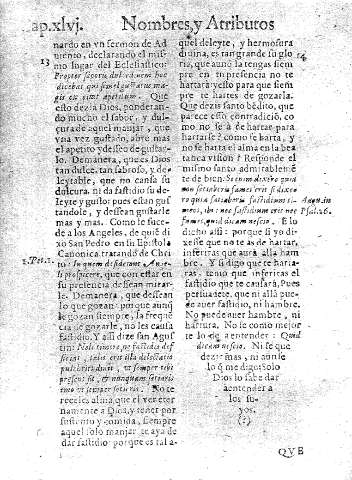 ap.xlvj.
Nombres, y Atributos
nardo en vn sermon de Ad
uento, declarando el mis
13
mo lugar del Eclesiastico:
Propter saporẽ dulcorẽ nem hoc
dicebat qui semel gustatus mag
gis excitat apetitum. Que
esto dezia Dios, ponderan
do mucho el sabor, y dul
çura de aquel manjar, que
vna vez gustado, abre mas
el apetito y deseo de gustar
lo. Demanera, que es Dios
tan dulce, tan sabroso, y de
leytable, que no cansa su
dulçura, ni da fastidio su de
leyte y gusto: pues estan gus
tandole, y dessean gustarle
mas y mas. Como le suce-
de a los Angeles, de quiẽ di
xo San Pedro en su Epistola
Canonica tratando de Christo
1.Pet.1.
In quem desiderant Ange
li prospicere, que con estar en
su presencia dessean mirar-
le. Demanera, que dessean
lo que gozan: porque aunq̃
le gozan siempre, la frequẽ
cia de gozarle, no les causa
fastidio. Y assi dize san Agus
tin: Noli timere, ne fastidio de
ficias, talis erit illa delectatio
pulchritudinis, vt semper tibi
præsens sit, & nunquam satieris:
imo vt semper satieris. No te
recelès alma que el ver eter
namente a Dios, y tener por
sustento y comida, siempre
aquel solo manjar te aya de
dar fastidio: porque es tal a-
quel deleyte, y hermosura
diuina, es tan grande su glo
14
ria, que aunq̃ la tengas siem
pre en tu presencia no te
hartarà: y esto para que siem
pre te hartes de gozarla.
Que dezis santo bẽdito, que
parece esso contradiciõ, co
mo no se à de hartar para
hartarse? como te harta, y
no se harta el alma en la be
ta beatifica vision? Responde el
mismo santo admirablemẽ
te de bien: Si enim dixero quia
non satiaberis fames erit: si dixe
ro quia satiaberis fastidium ti-
Augu. in
meo, ibi: nec fastidium erit nec
Psal. 26.
fames, quid dicam nescio. E lo
dicho assi: porque si yo di-
xesse que no te as de hartar,
inferirias que aura alla ham
bre. Y si digo que te harta-
ras, temo que inferiras el
fastidio que te causarà. Pues
persuadete, que ni alla pue-
de auer fastidio, ni hambre.
No puede auer hambre, ni
hartura. No se como mejor
te lo dè a entender: Quid
dicam nescio. Ni se que
dezir mas, ni aun se
lo q̃ me digo: solo
Dios lo sabe dar
a entender a
los su-
yos.
(?)
QVE